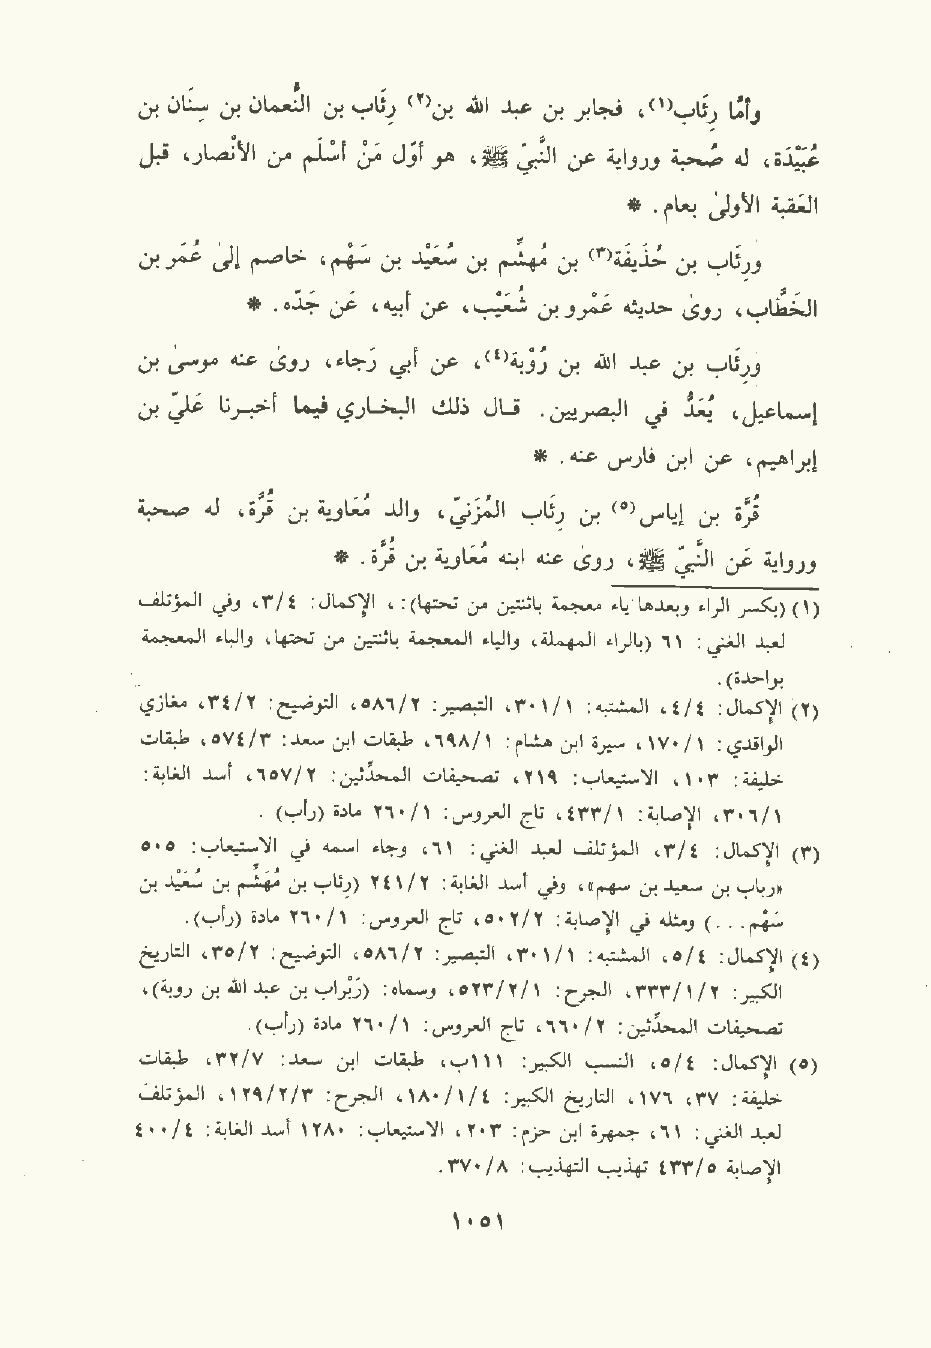 وأمّا رِئَاب(١)، فجابر بن عبد الله بن(٢) رِئَاب بن النُّعمان بن سِنَان بن
عُبَيْدَة، له صُحبة ورواية عن النَّبيّ ﷺ، هو أوّل مَنْ أسْلَم من الأنْصار، قبل
العَقبة الأولىٰ بعام. *
ورِئَاب بن حُذَيفَة(٣) بن مُهشّم بن سُعَيْد بن سَهْم، خاصم إلىٰ عُمَر بن
الخَطَّاب، روىٰ حديثه عَمْرو بن شُعَيْب، عن أبيه، عَن جَدّه. *
ورِئَاب بن عبد الله بن رُؤبة(٤)، عن أبي رَجاء، روىٰ عنه موسىٰ بن
إسماعيل، يُعَدُّ في البصريين. قال ذلك البخاري فيما أخبرنا عَليّ بن
إبراهيم، عن ابن فارس عنه. *
قُرَّة بن إياس(٥) بن رِئَاب المُزَنيّ، والد مُعَاوية بن قُرَّة، له صحبة
ورواية عَن النَّبيّ ﷺ، روىٰ عنه ابنه مُعَاوية بن قُرَّة. *
(١) (بكسر الراء وبعدها ياء معجمة باثنتين من تحتها): ، الإكمال: ٣/٤، وفي المؤتلف
لعبد الغني: ٦١ (بالراء المهملة، والياء المعجمة باثنتين من تحتها، والباء المعجمة
بواحدة).
(٢) الإكمال: ٤/٤، المشتبه: ٣٠١/١، التبصير: ٥٨٦/٢، التوضيح: ٣٤/٢، مغازي
الواقدي: ١٧٠/١، سيرة ابن هشام: ٦٩٨/١، طبقات ابن سعد: ٥٧٤/٣، طبقات
خليفة: ١٠٣، الاستيعاب: ٢١٩، تصحيفات المحدّثين: ٦٥٧/٢، أسد الغابة:
٣٠٦/١، الإصابة: ٤٣٣/١، تاج العروس: ٢٦٠/١ مادة (رأب) .
(٣) الإكمال: ٣/٤، المؤتلف لعبد الغني: ٦١، وجاء اسمه في الاستيعاب: ٥٠٥
«رباب بن سعيد بن سهم»، وفي أسد الغابة: ٢٤١/٢ (رئاب بن مُهَشَّم بن سُعَيْد بن
سَهْم...) ومثله في الإصابة: ٥٠٢/٢، تاج العروس: ٢٦٠/١ مادة (رأب).
(٤) الإكمال: ٥/٤، المشتبه: ٣٠١/١، التبصير: ٥٨٦/٢، التوضيح: ٣٥/٢، التاريخ
الكبير: ٣٣٣/١/٢، الجرح: ٥٢٣/٢/١، وسماه: (رَبْرَاب بن عبد الله بن روبة)،
تصحيفات المحدّثين: ٦٦٠/٢، تاج العروس: ٢٦٠/١ مادة (رأب).
(٥) الإكمال: ٥/٤، النسب الكبير: ١١١ب، طبقات ابن سعد: ٣٢/٧، طبقات
خليفة: ٣٧، ١٧٦، التاريخ الكبير: ١٨٠/١/٤، الجرح: ١٢٩/٢/٣، المؤتلف
لعبد الغني: ٦١، جمهرة ابن حزم: ٢٠٣، الاستيعاب: ١٢٨٠ أسد الغابة: ٤٠٠/٤
الإصابة ٤٣٣/٥ تهذيب التهذيب: ٣٧٠/٨.
١٠٥١